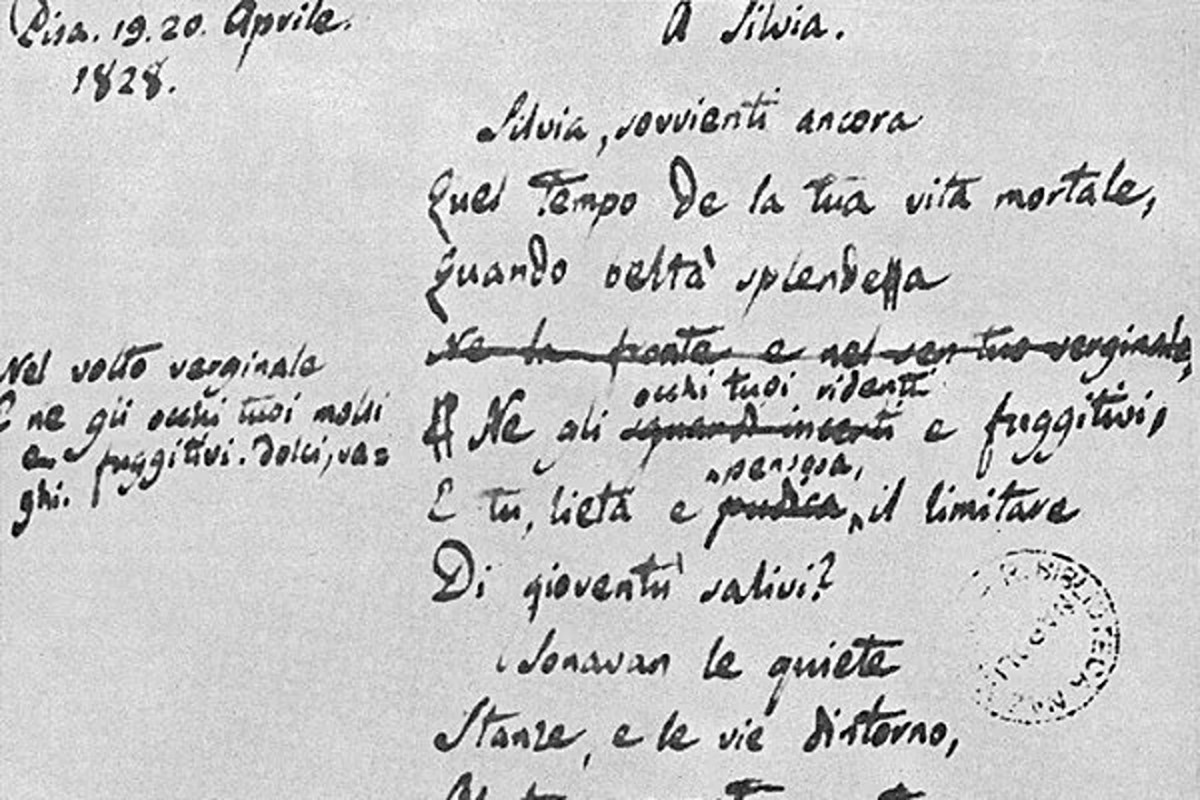 Pisa. 19. 20. Aprile.
1828.
A Silvia.
Silvia, sovvienti ancora
Quel tempo de la tua vita mortale,
Quando beltà splendea
Ne la fronte e nel sen tuo verginale,
occhi tuoi ridenti
Ne gli sguardi incerti e fuggitivi,
pensosa,
E tu, lieta e pudica, il limitare
Di gioventù salivi?
Sonavan le quiete
Stanze, e le vie dintorno,
Nel volto verginale
E ne gli occhi tuoi molli
e fuggitivi. dolci, va=
ghi.
R. BIBLIOTECA
NAPOLI